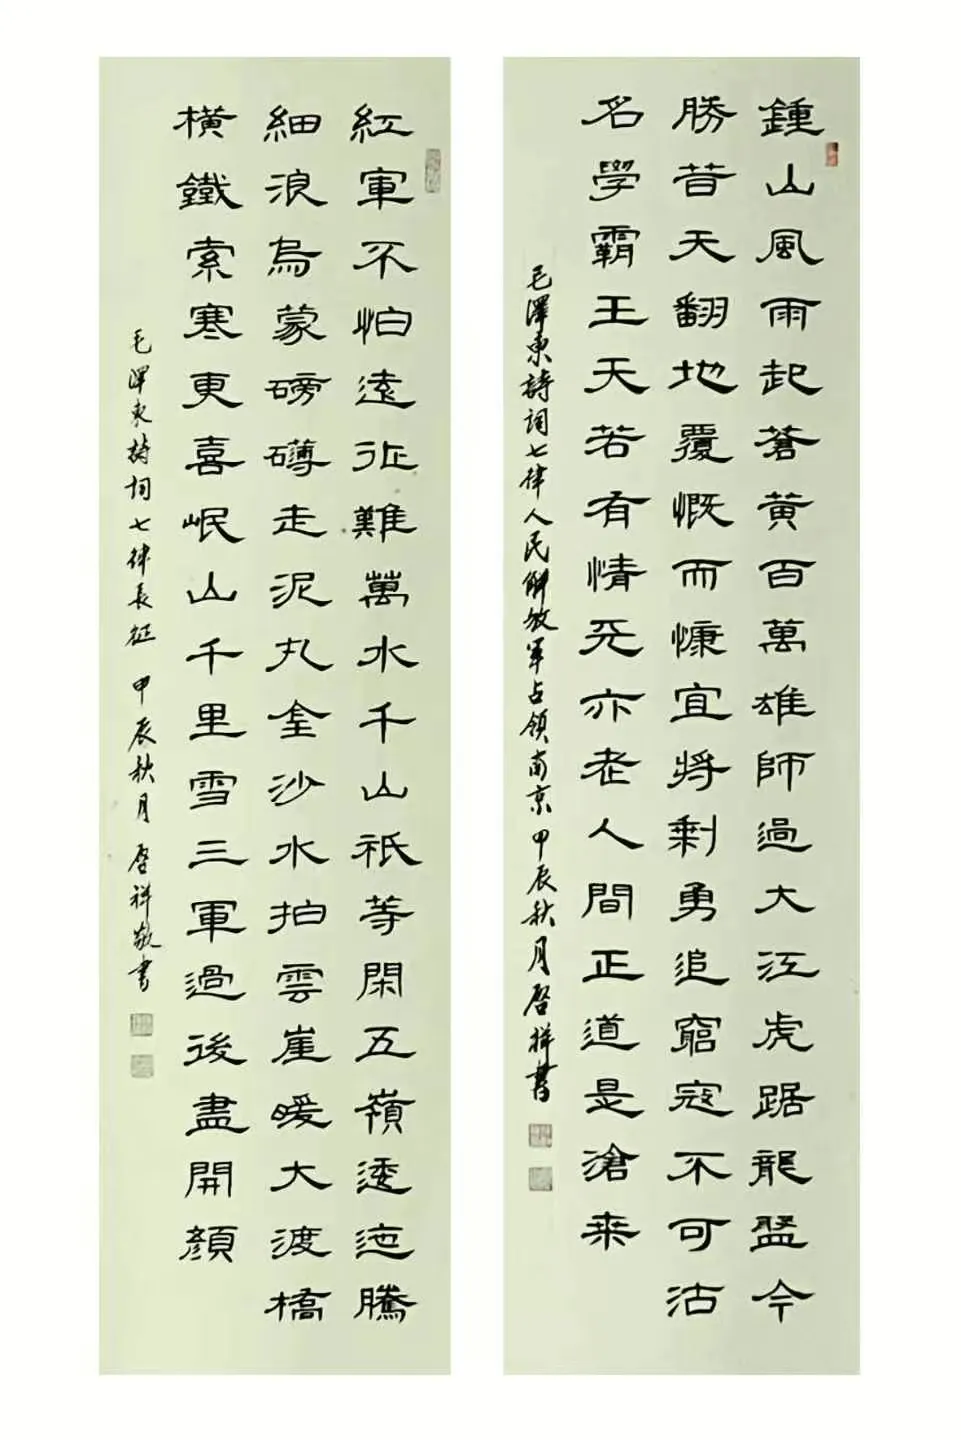 鍾山風雨起蒼黃百萬雄師過大江虎踞龍盤今
勝昔天翻地覆慨而慷宜將剩勇追窮寇不可沽
名學霸王天若有情天亦老人間正道是滄来
毛澤東詩詞七律人民解放軍占領南京 甲辰秋月啓祥書
紅軍不怕遠征難萬水千山祇等閑五嶺逶迤騰
細浪烏蒙磅礴走泥丸金沙水拍雲崖暖大渡橋
橫鐵索寒更喜岷山千里雪三軍過後盡開顏
毛澤東詩詞七律長征 甲辰秋月 啓祥敬書